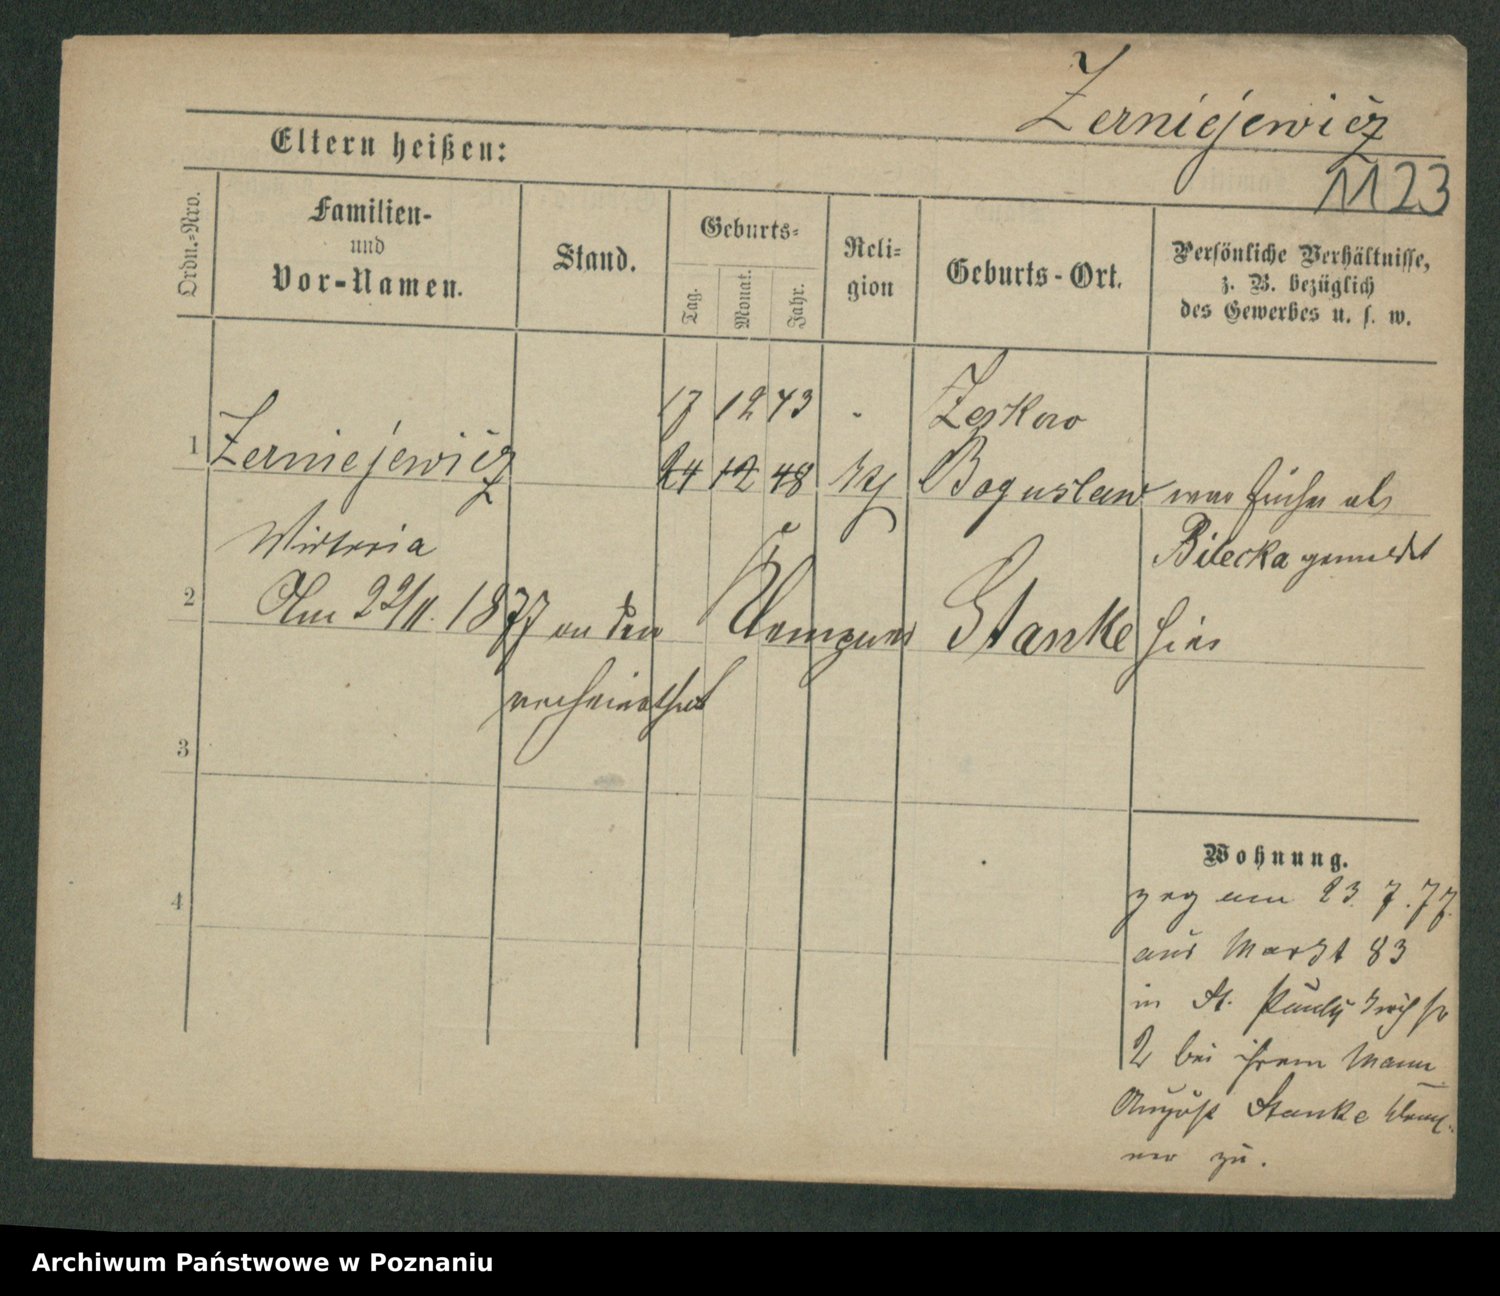 Zerniejewicz
1123
Eltern heißen:
Ordn.-Nro.
Familien-
und
Vor-Namen.
Stand.
Geburts-
Tag.
Monat.
Jahr.
Reli-
gion
Geburts-Ort.
Persönliche Verhältnisse,
z. B. bezüglich
des Gewerbes u. s. w.
17 12 43 - Zerkow
1 Zerniejewicz 24 12 48 kth Boguslaw war früher als
Wiktoria Bilecka gemeldet
2 Am 22/11. 1877 an den Klempner Stanke hier
verheirathet
3
4
Wohnung.
zog am 23. 7. 77.
aus Markt 83
in St. Pauly Kirchstr
2 bei ihrem Mann
August Stanke Klemp-
ner zu.
Archiwum Państwowe w Poznaniu